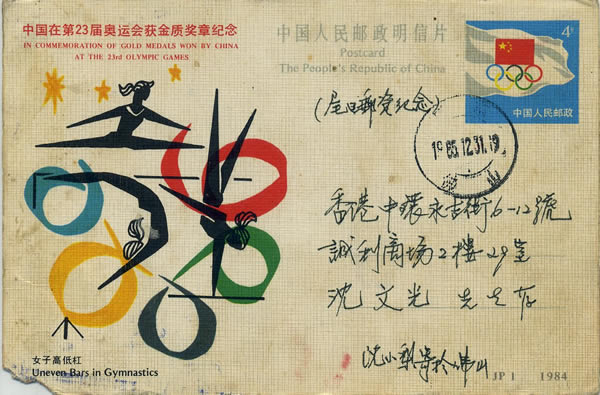 中国在第23届奥运会获金质奖章纪念
IN COMMEMORATION OF GOLD MEDALS WON BY CHINA
AT THE 23rd OLYMPIC GAMES
中国人民邮政明信片
Postcard
The People's Republic of China
4分
中国人民邮政
(尾日郵资纪念)
1985.12.31.19
山
香港中環永吉街6-12號
誠利商场2樓29室
沈文光 先生存
沈小梨寄於佛山
女子高低杠
Uneven Bars in Gymnastics
JP 1 1984